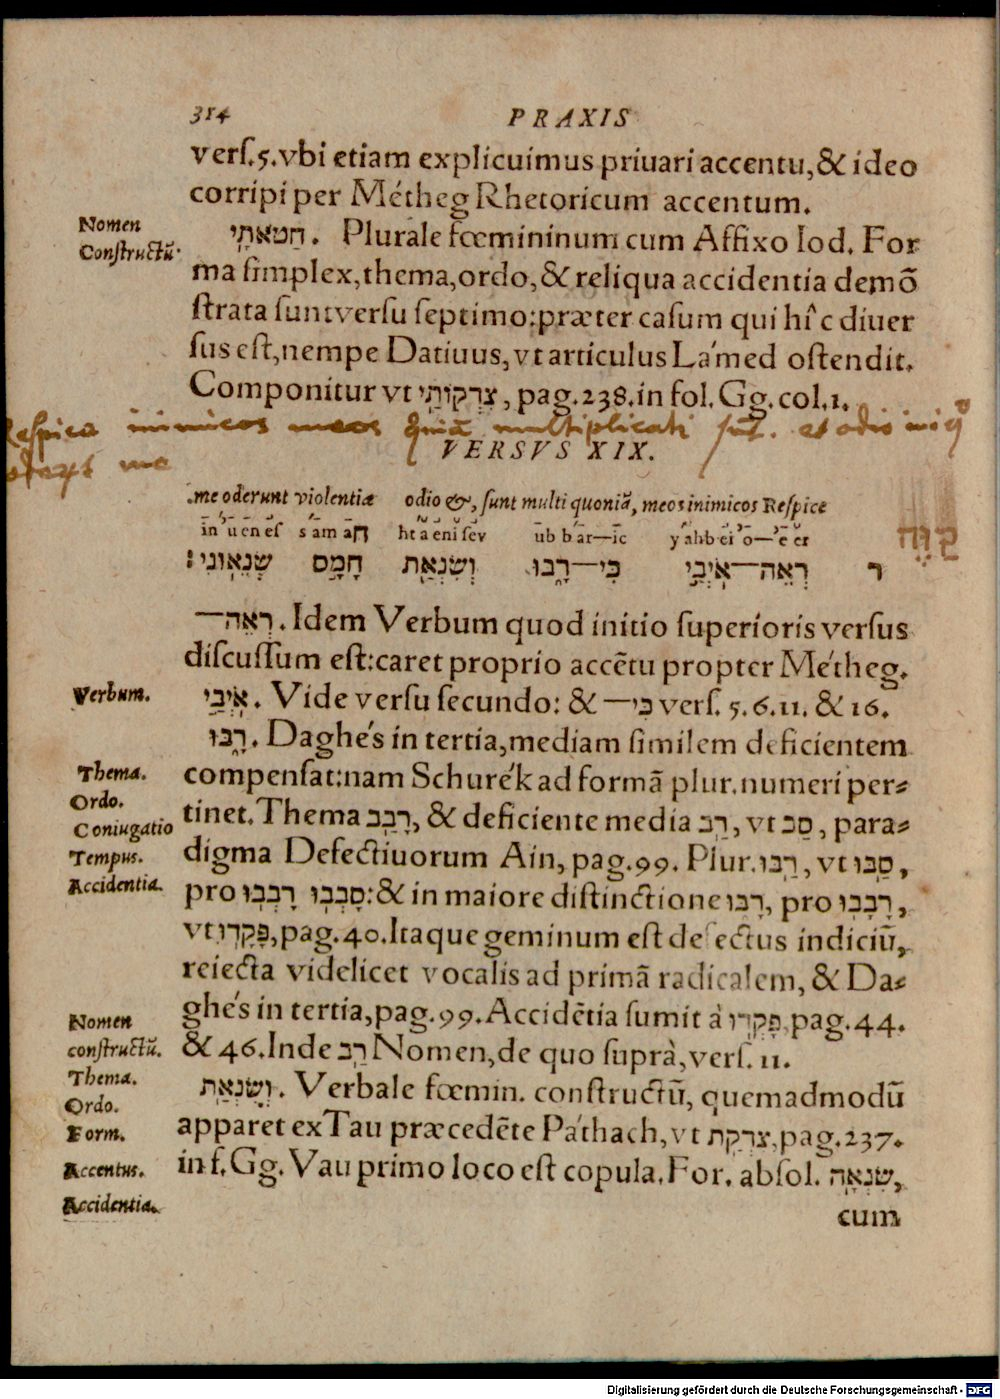 314 PRAXIS
verſ.5.vbi etiam explicuimus priuari accentu,& ideo
corripi per Métheg Rhetoricum accentum.
Nomen
Conſtructũ.
חַטֹּאתָי. Plurale fœmininum cum Affixo Iod. For
ma ſimplex,thema,ordo,& reliqua accidentia demõ
ſtrata ſunt verſu ſeptimo:præter caſum qui hîc diuer
ſus eſt,nempe Datiuus,vt articulus Lámed oſtendit.
Componitur vt צִדְקוֹתַי, pag.238.in fol.Gg.col.1.
Reſpice inimicos meos quiã multiplicati ſũt. et odio iniq
me
VERSVS XIX.
me oderunt violentiæ odio &, ſunt multi quoniã, meos inimicos Reſpice
קַוֵּה
ר רְאֵה—אֹיְבַי כִּי—רָבּוּ וְשִׂנְאַת חָמָס שְׂנֵאוּנִי:
רְאֵה—. Idem Verbum quod initio ſuperioris verſus
diſcuſſum eſt:caret proprio accẽtu propter Métheg.
Verbum.
אֹיְבַי. Vide verſu ſecundo: & כִּי— verſ. 5.6.11. & 16.
רָבּוּ. Daghés in tertia,mediam ſimilem deficientem
Thema.
compenſat:nam Schurék ad formã plur.numeri per-
Ordo.
Coniugatio
tinet.Thema רָבַב, & deficiente media רַב, vt סַב, para-
Tempus.
digma Defectiuorum Ain, pag.99. Plur.רַבּוּ, vt סַבּוּ,
Accidentia.
pro סָבְבוּ רָבְבוּ:& in maiore diſtinctione רָבּוּ, pro רָבָבוּ,
vt פָּקָדוּ,pag.40.Itaque geminum eſt defectus indiciũ,
reiecta videlicet vocalis ad primã radicalem, & Da-
ghés in tertia,pag.99.Accidẽtia ſumit à פָּקְדוּ,pag.44.
Nomen
conſtructũ.
& 46.Inde רַב Nomen,de quo ſuprà,verſ. 11.
Thema.
וְשִׂנְאַת. Verbale fœmin. conſtructũ, quemadmodũ
Ordo.
Form.
apparet ex Tau præcedẽte Páthach,vt צִדְקַת,pag.237.
Accentus.
in f.Gg. Vau primo loco eſt copula.For. abſol. שִׂנְאָה,
Accidentia.
cum
Digitalisierung gefördert durch die Deutsche Forschungsgemeinschaft - DFG